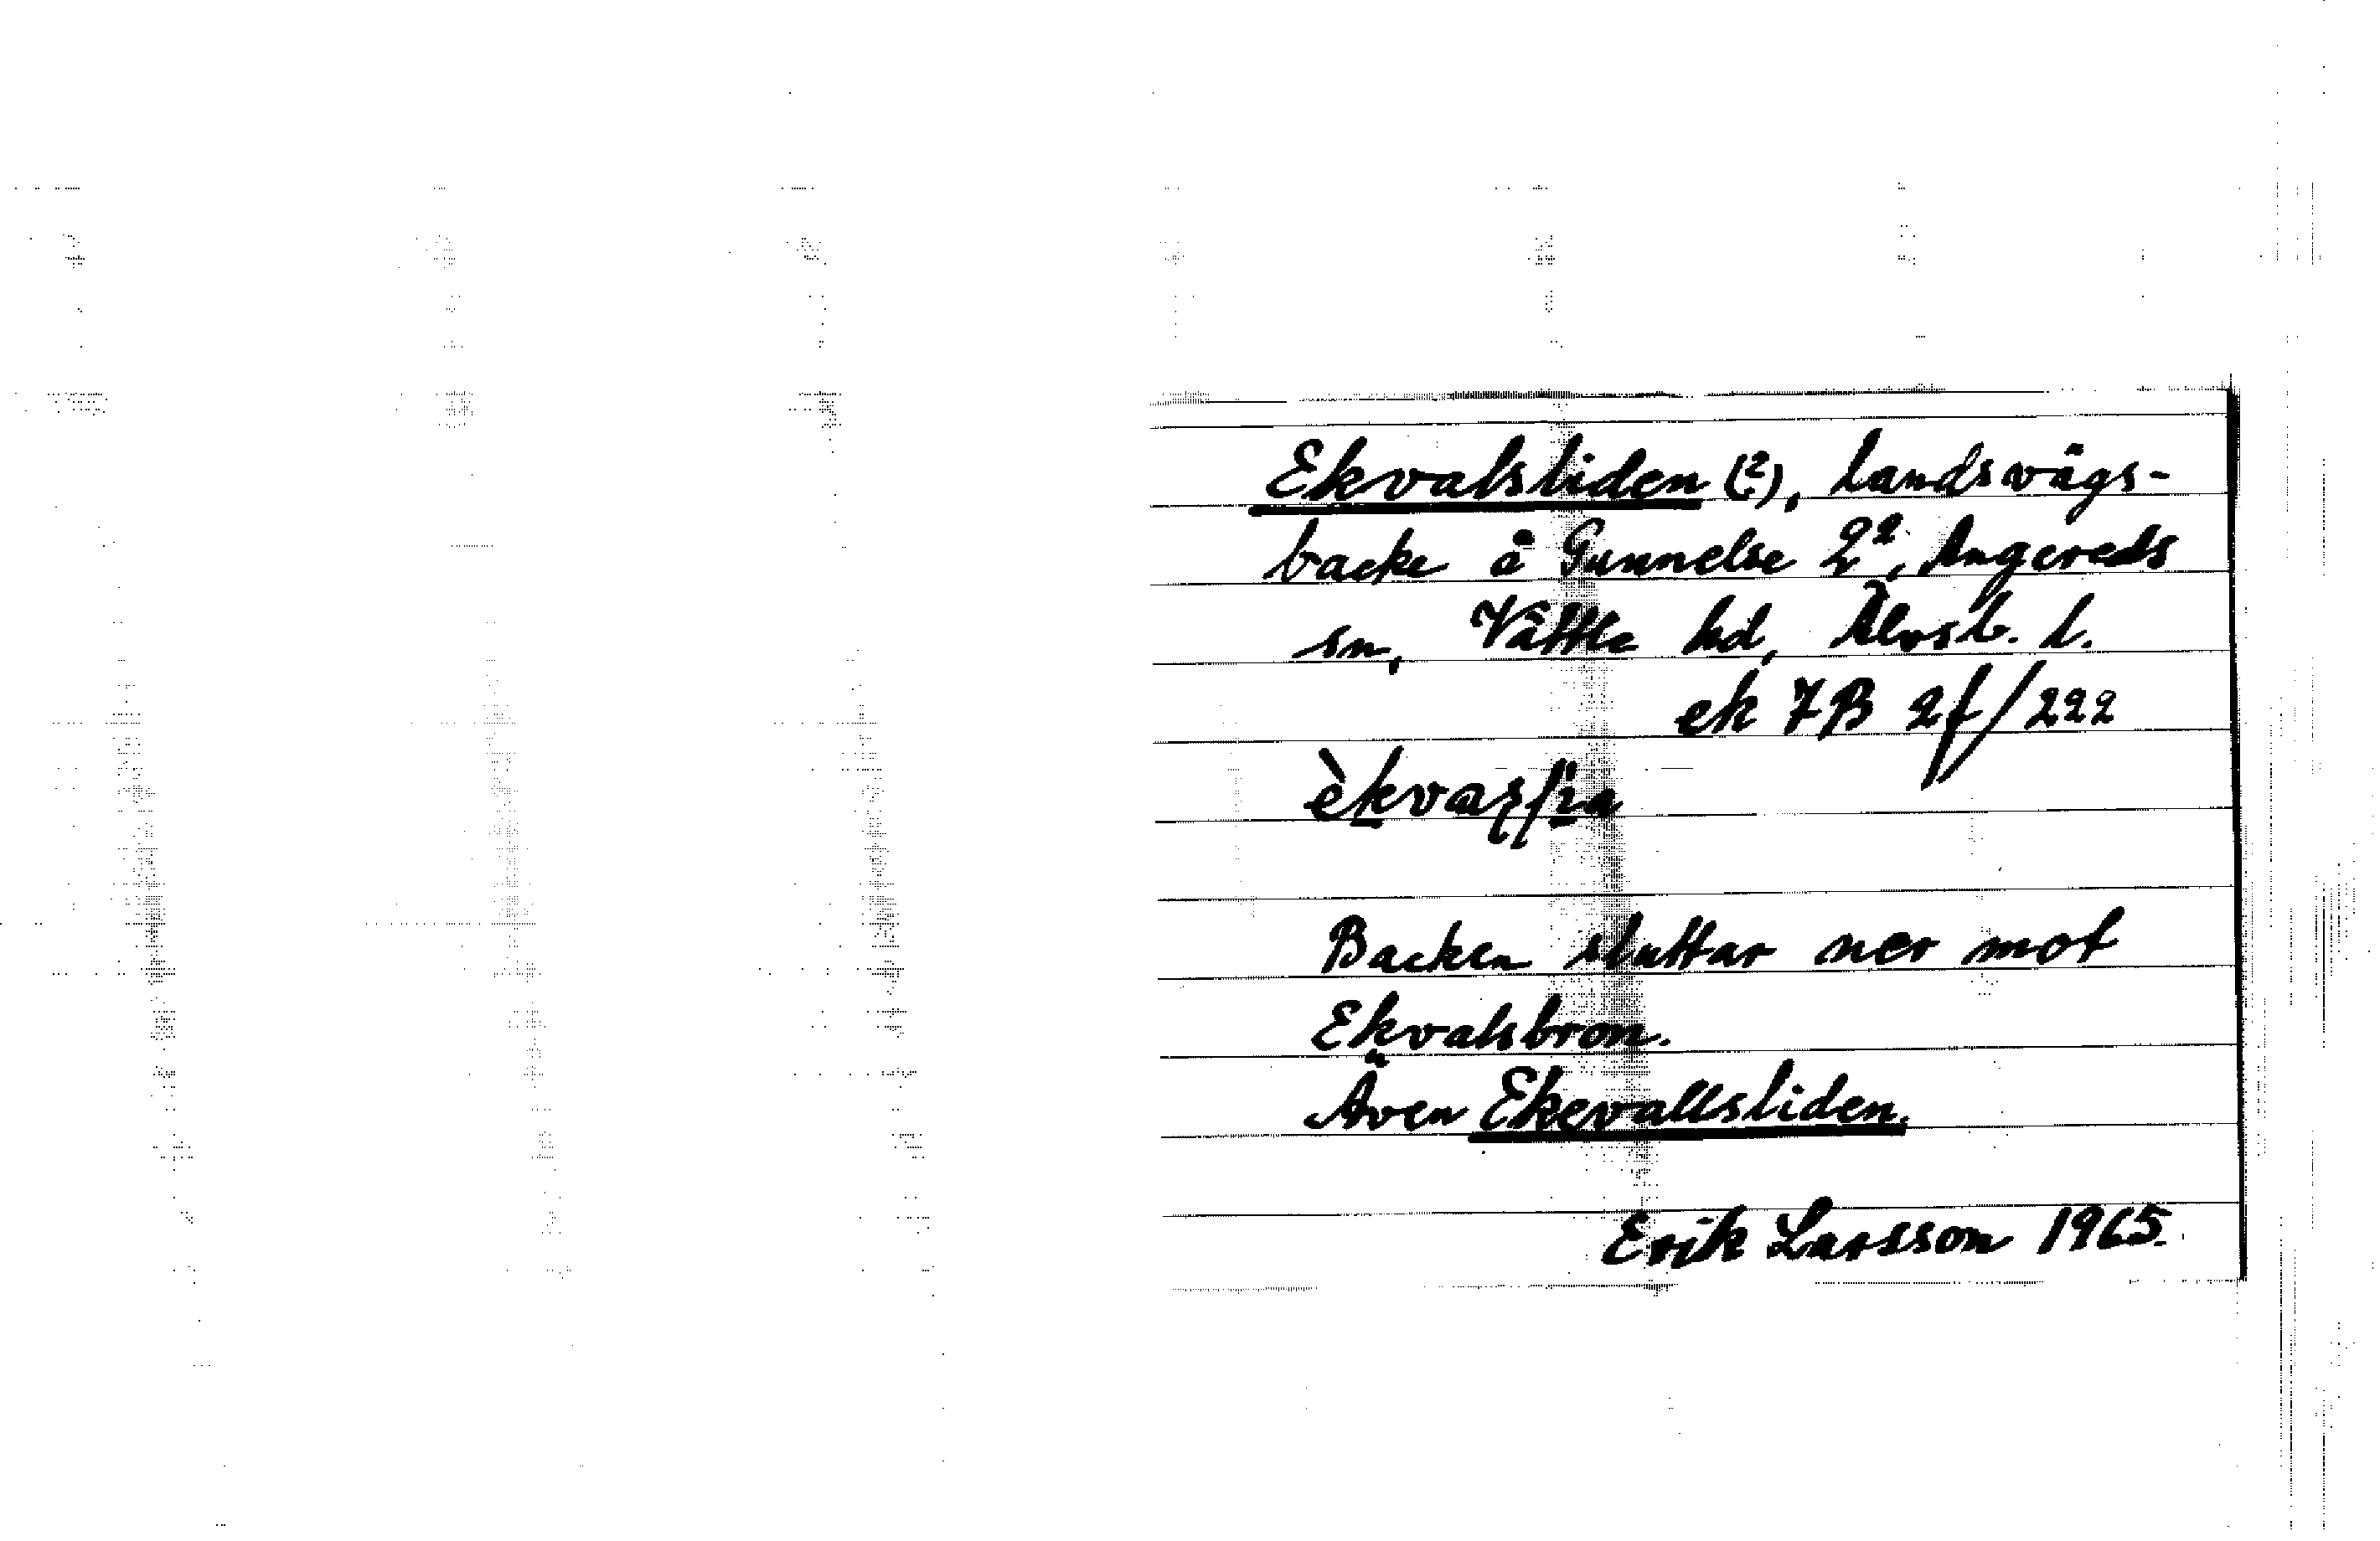 Ekvalsliden (?), landsvägs-
backe å Gunnelse 2², Angereds
sn, Vättle hd, Älvsb. l.
ek 7B 2f/222
Backen sluttar ner mot
Ekvalsbron.
Även Ekevallsliden.
Erik Larsson 1965.